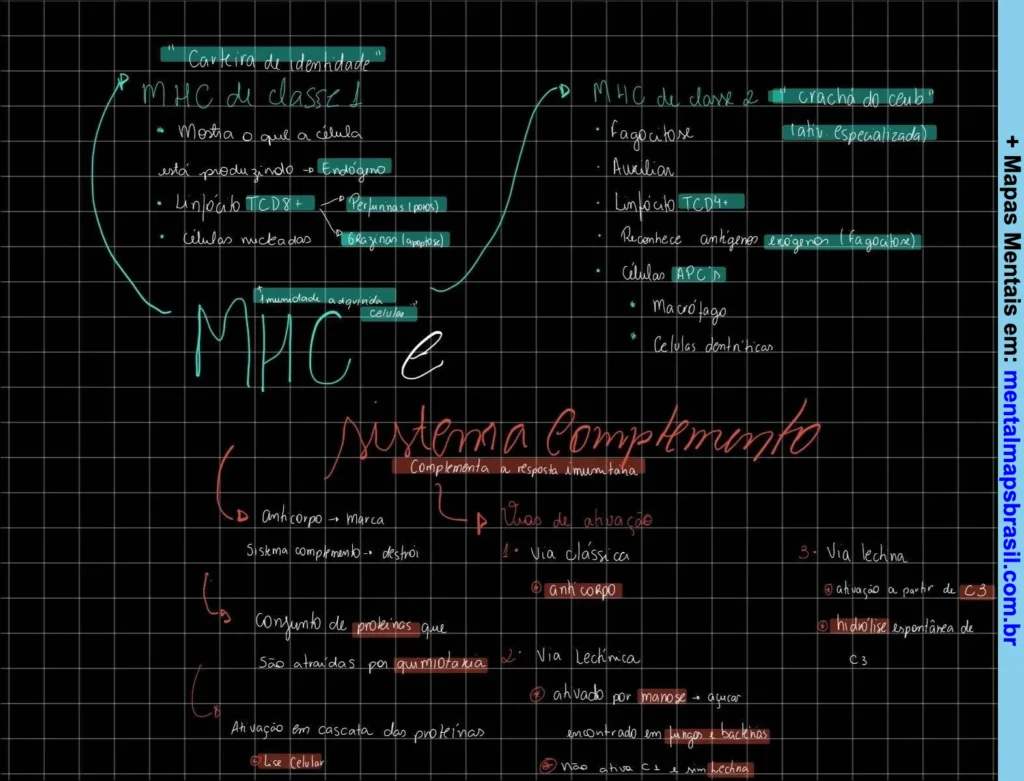 "Carteira de identidade"
MHC de classe 1
• Mostra o que a célula
está produzindo → Endógeno
• Linfócito TCD8+
Perfurinas (poros)
Grazinas (apoptose)
• Células nucleadas
MHC de classe 2 "crachá do ceub"
(ativ especializada)
• Fagocitose
• Auxiliar
• Linfócito TCD4+
• Reconhece antígenos exógenos (fagocitose)
• Células APC's
• Macrófago
• Células dentríticas
Imunidade adquirida
celular
MHC e
Sistema Complemento
Complementa a resposta imunitária
Anticorpo → marca
Sistema complemento → destrói
Conjunto de proteínas que
São atraídas por quimiotaxia
Ativação em cascata das proteínas
Lise Celular
Vias de ativação
1. Via clássica
anticorpo
2. Via Lectínica
ativado por manose → açúcar
encontrado em fungos e bactérias
Não ativa C1 e sim Lectina
3. Via lectina
ativação a partir de C3
hidrólise espontânea de
C3
+ Mapas Mentais em: mentalmapsbrasil.com.br